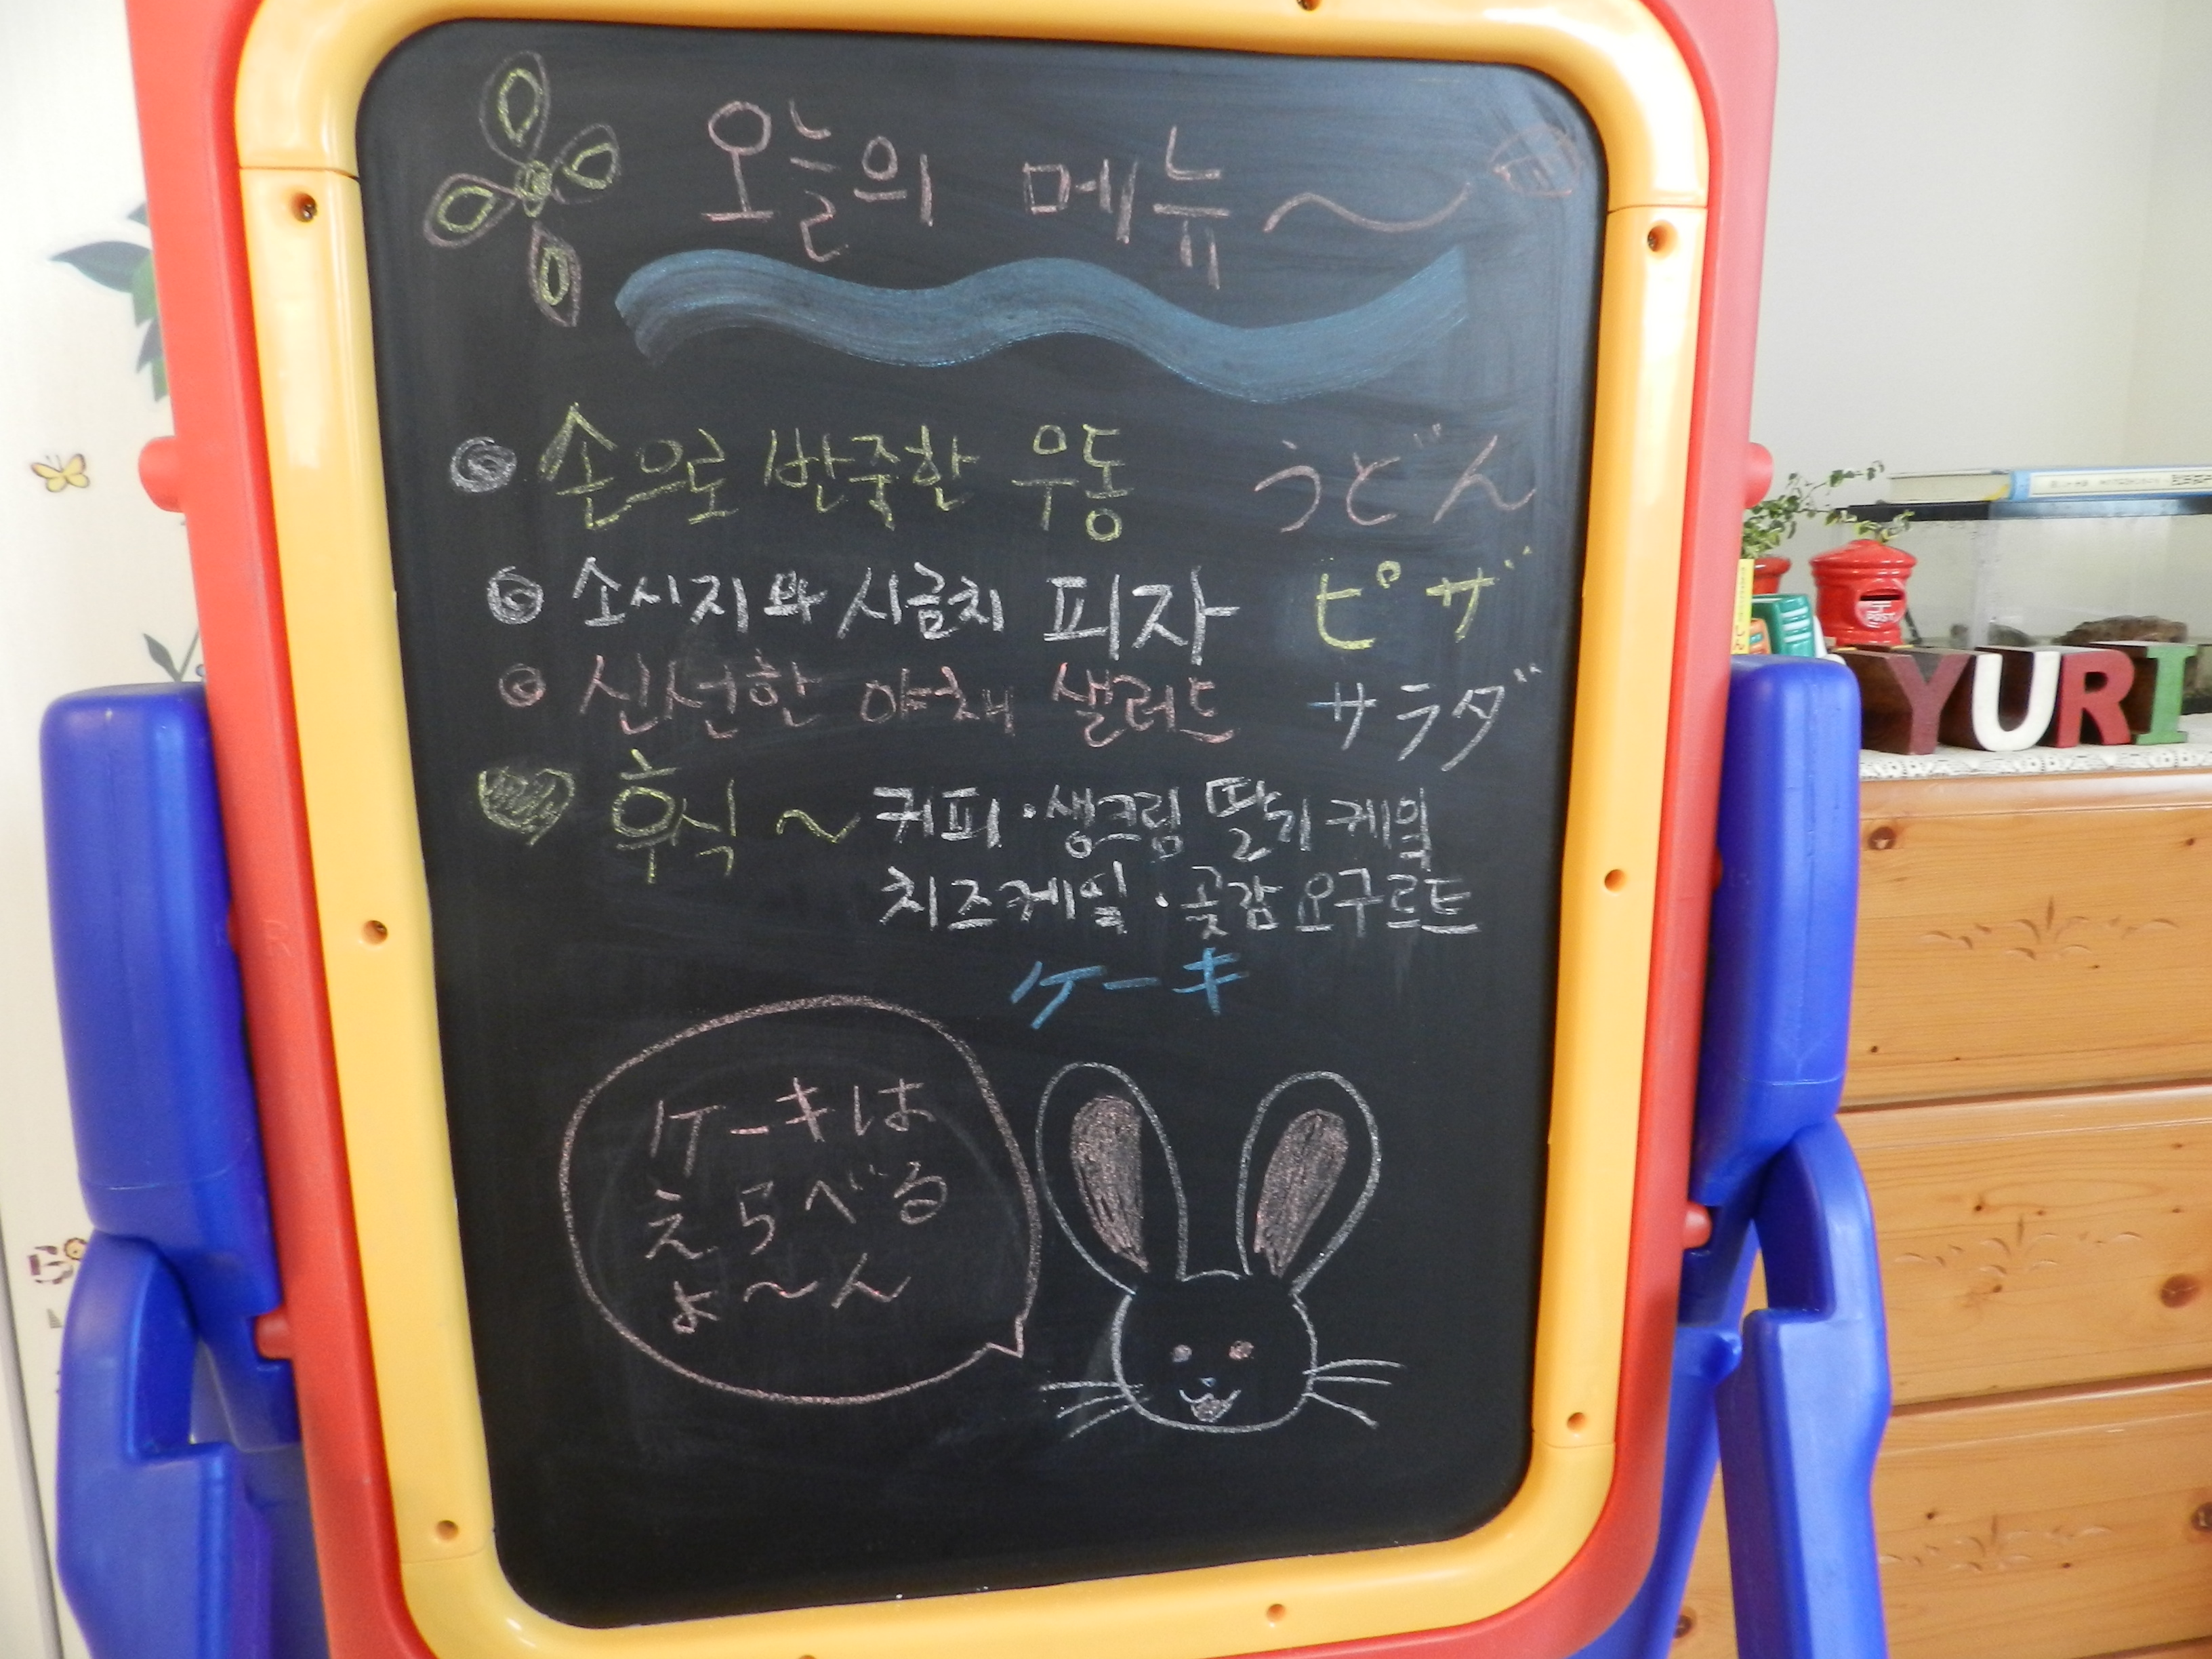 오늘의 메뉴~
손으로 반죽한 우동 うどん
소시지와 시금치 피자 ピザ
신선한 야채 샐러드 サラダ
후식 ~ 커피·생크림 딸기 케잌
치즈케잌·곶감 요구르트
ケーキ
ケーキは
えらべる
よ~ん
POST
YURI